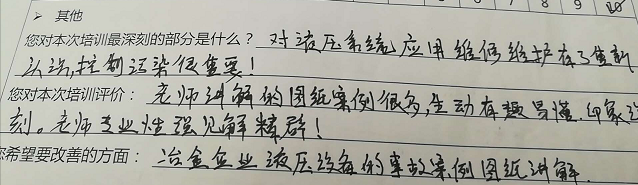 其他
您对本次培训最深刻的部分是什么？ 对液压系统应用维修维护有了重新
认识，控制污染很重要！
您对本次培训评价： 老师讲解的图纸案例很多，生动有趣易懂，印象深
刻。老师专业性强见解精辟！
您希望要改善的方面： 冶金企业液压设备的事故案例图纸讲解
7 8 9 10